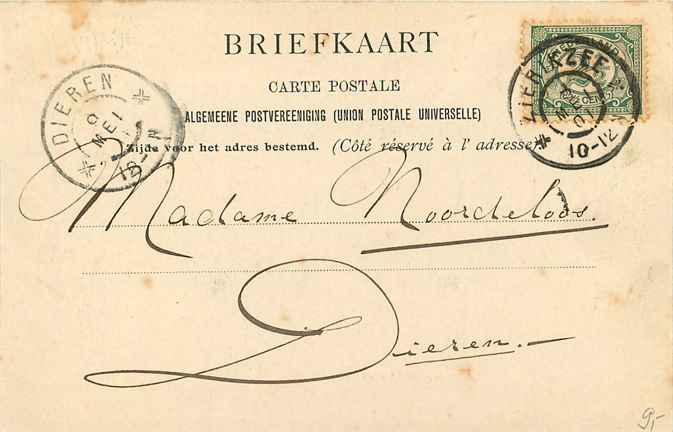 BRIEFKAART
CARTE POSTALE
ALGEMEENE POSTVEREENIGING (UNION POSTALE UNIVERSELLE)
Zijde voor het adres bestemd. (Côté réservé à l' adresse)
DIEREN
MEI
ZIERIKZEE
10-12
Madame Noordeloos.
Dieren.—
9,-